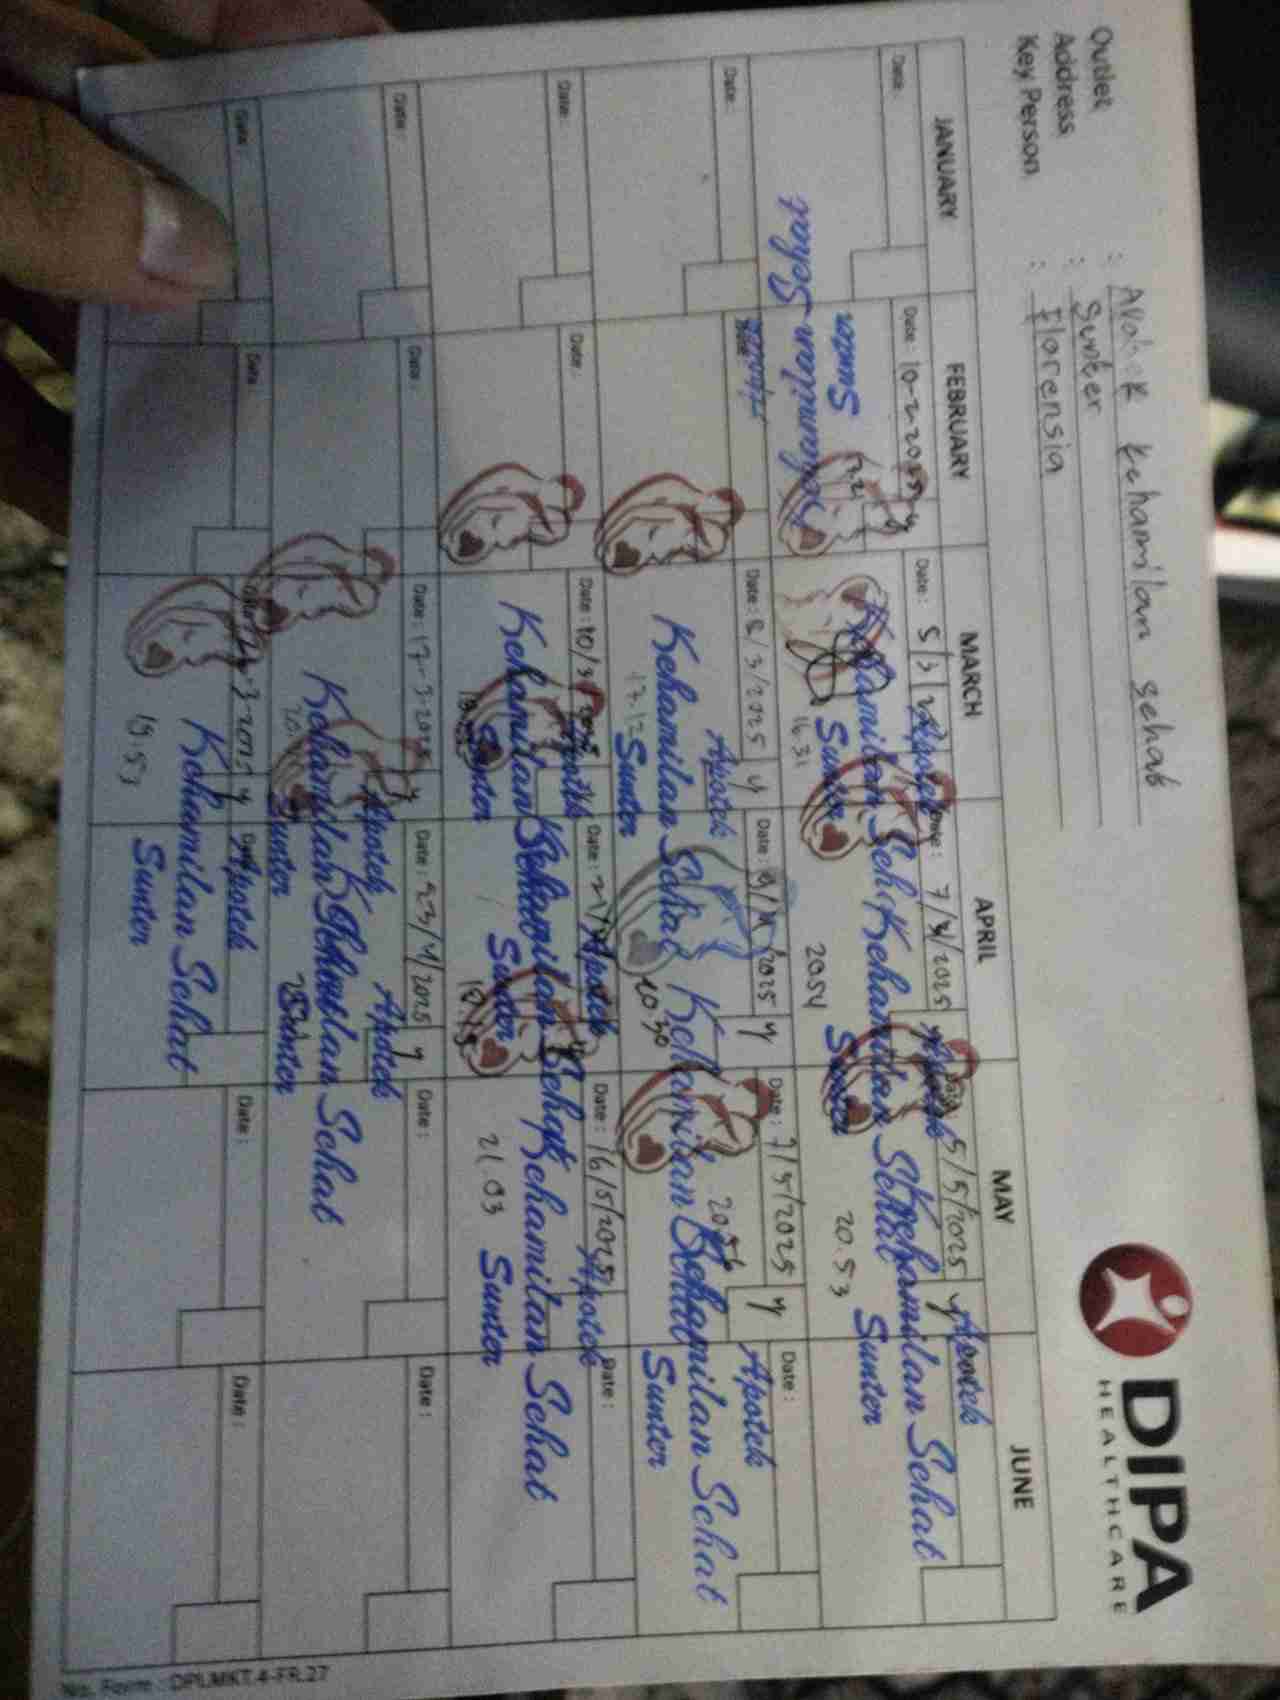 DIPA
HEALTHCARE
Outlet : Apotek kehamilan sehat
Address : Sunter
Key Person : Florensia
JANUARY FEBRUARY MARCH APRIL MAY JUNE
Date : Date : 10-2-2025 Date : 5/3/ Date : 7/4/2025 Date : 5/5/2025
Apotek Apotek Apotek
Kehamilan Sehat Kehamilan Sehat Kehamilan Sehat Kehamilan Sehat
Sunter Sunter Sunter Sunter
16.31 20.54 20.53
Date : Date : 8/3/2025 Date : /2025 Date : 7/5/2025 Date :
Apotek Apotek
Kehamilan Sehat Kehamilan Sehat Kehamilan Sehat
Sunter Sunter
17.12 20.30 20.56
Date : Date : Date : 10/3/2025 Date : Date : 16/5/2025 Date :
Apotek Apotek Apotek
Kehamilan Sehat Kehamilan Sehat Kehamilan Sehat
Sunter Sunter Sunter
21.03
Date : Date : Date : 17-3-2025 Date : 23/4/2025 Date : Date :
Apotek Apotek
Kehamilan Sehat Kehamilan Sehat
Sunter Sunter
Date : Date : Date : Date : Date : Date :
Apotek
Kehamilan Sehat
Sunter
19.53
No. Form : DPLMKT.4-FR.27